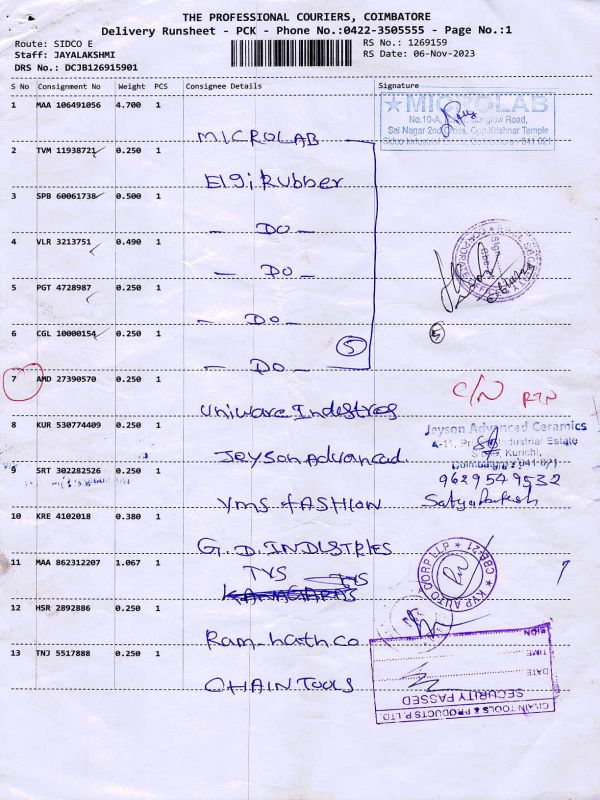 THE PROFESSIONAL COURIERS, COIMBATORE
Delivery Runsheet - PCK - Phone No.:0422-3505555 - Page No.:1
Route: SIDCO E
RS No.: 1269159
Staff: JAYALAKSHMI
RS Date: 06-Nov-2023
DRS No.: DCJB126915901
S No Consignment No Weight PCS Consignee Details Signature
1 MAA 106491056 4.700 1
MICROLAB
MICROLAB
Sai Nagar 2nd Cross, Opp.Krishnar Temple
2 TVM 11938721 0.250 1
Elgi Rubber
3 SPB 60061738 0.500 1
- DO -
4 VLR 3213751 0.490 1
- DO -
5 PGT 4728987 0.250 1
- DO -
5
5
6 CGL 10000154 0.250 1
- DO -
7 AMD 27390570 0.250 1
C/N RTN
Uniware Indestres
8 KUR 530774409 0.250 1
Jeyson Advanced Ceramics
Industrial Estate
Kurichi,
Jeyson Advanced.
9 SRT 302282526 0.250 1
9629549532
YMS FASHION
10 KRE 4102018 0.380 1
G.D. INDUSTRIES
KVP AUTO CORP LLP * CBE-21 *
11 MAA 862312207 1.067 1
TVS TVS
12 HSR 2892886 0.250 1
Ram-nath co
13 TNJ 5517888 0.250 1
CHAIN TOOLS
TIME
DATE
SECURITY PASSED
CHAIN TOOLS & PRODUCTS P. LTD.